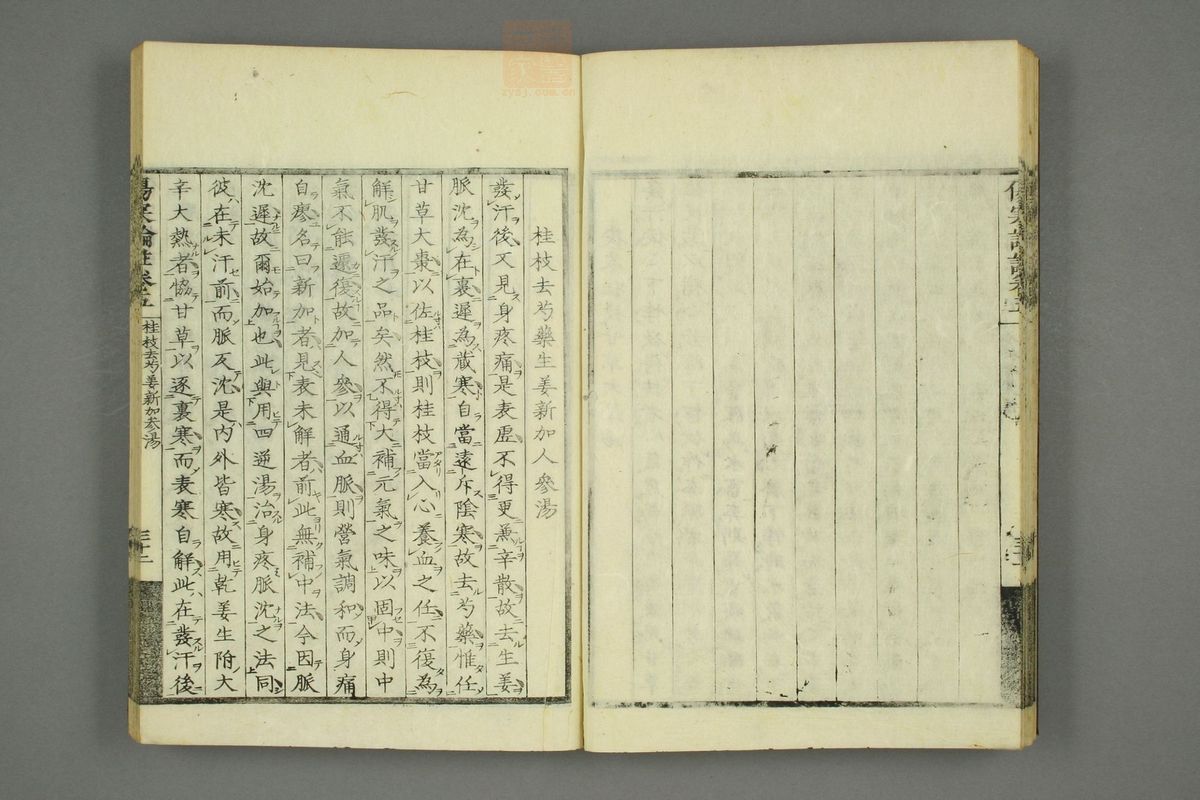 桂枝去芍藥生姜新加人參湯
發汗後又見身疼痛是表虛不得更薫辛散故去生姜
脈沈為在裏遲為蔵寒自當遠斥陰寒故去芍藥惟任
甘草大棗以佐桂枝則桂枝當入心養血之任不復為
解肌發汗之品矣然不得大補元氣之味以固中則中
氣不能遽復故加人參以通血脈則營氣調和而身痛
自瘳名曰新加者見表未解者前此無補中法今因脈
沈遲故爾始加也此與用四逆湯治身疼脈沈之法同
彼在未汗前而脈反沈是內外皆寒故用乾姜生附大
辛大熱者恊甘草以逐裏寒而表寒自解此在發汗後
傷寒論註卷五
桂枝去芍姜新加参湯
三十二
zysj.com.cn